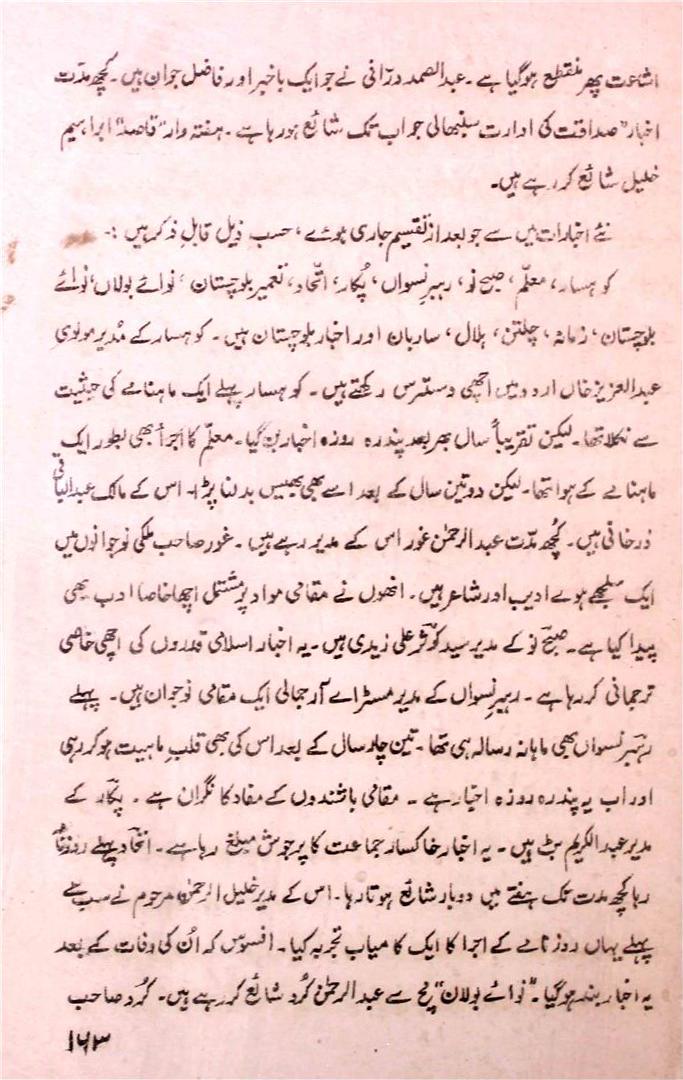 اشاعت پھر منقطع ہوگیا ہے۔ عبدالصمد درّانی نے جو ایک باخبر اور فاضل جوان ہیں۔ کچھ مدّت
اخبار "صداقت کی ادارت سنبھالی جو اب تک شائع ہو رہا ہے۔ ہفتہ وار "قاصد" ابراہیم
خلیل شائع کر رہے ہیں۔
نئے اخبارات میں سے جو بعد از تقسیم جاری ہوئے، حسب ذیل قابلِ ذکر ہیں :۔
کوہسار، معلّم، صبح نو، رہبرِ نسواں، پُکار، اتّحاد، تعمیرِ بلوچستان، نوائے بولاں، نوائے
بلوچستان، زمانہ، چلتن، ہلال، ساربان اور اخبار بلوچستان ہیں۔ کوہسار کے مُدیر مولوی
عبدالعزیز خاں اردو میں اچھی دسترس رکھتے ہیں۔ کوہسار پہلے ایک ماہنامے کی حیثیت
سے نکلا تھا۔ لیکن تقریباً سال بھر بعد پندرہ روزہ اخبار بن گیا۔ معلّم کا اجرا بھی بطور ایک
ماہنامے کے ہوا تھا۔ لیکن دو تین سال کے بعد اسے بھی بھیس بدلنا پڑا۔ اس کے مالک عبدالباقی
دُرخانی ہیں۔ کُچھ مدّت عبدالرحمٰن غور اس کے مدیر رہے ہیں۔ غور صاحب ملکی نوجوانوں میں
ایک سلجھے ہوے ادیب اور شاعر ہیں۔ انھوں نے مقامی مواد پر مشتمل اچھا خاصا ادب بھی
پیدا کیا ہے۔ صبح نو کے مدیر سید کوثر علی زیدی ہیں۔ یہ اخبار اسلامی قدروں کی اچھی خاصی
ترجمانی کر رہا ہے۔ رہبرِ نسواں کے مدیر مسٹر اے آر جمالی ایک مقامی نوجوان ہیں۔ پہلے
رہبرِ نسواں بھی ماہانہ رسالہ ہی تھا۔ تین چار سال کے بعد اس کی بھی قلبِ ماہیت ہو کر رہی
اور اب یہ پندرہ روزہ اخبار ہے۔ مقامی باشندوں کے مفاد کا نگران ہے۔ پکار کے
مدیر عبدالکریم بٹ ہیں۔ یہ اخبار خاکسار جماعت کا پرجوش مبلغ رہا ہے۔ اتحاد پہلے روزنامہ
رہا کچھ مدت تک ہفتے میں دوبار شائع ہوتا رہا۔ اس کے مدیر خلیل الرحمٰن مرحوم نے سب سے
پہلے یہاں روزنامے کے اجرا کا ایک کامیاب تجربہ کیا۔ افسوس کہ اُن کی وفات کے بعد
یہ اخبار بند ہو گیا۔ "نوائے بولان" مچ سے عبدالرحمٰن کُرد شائع کر رہے ہیں۔ کُرد صاحب
۱۶۳